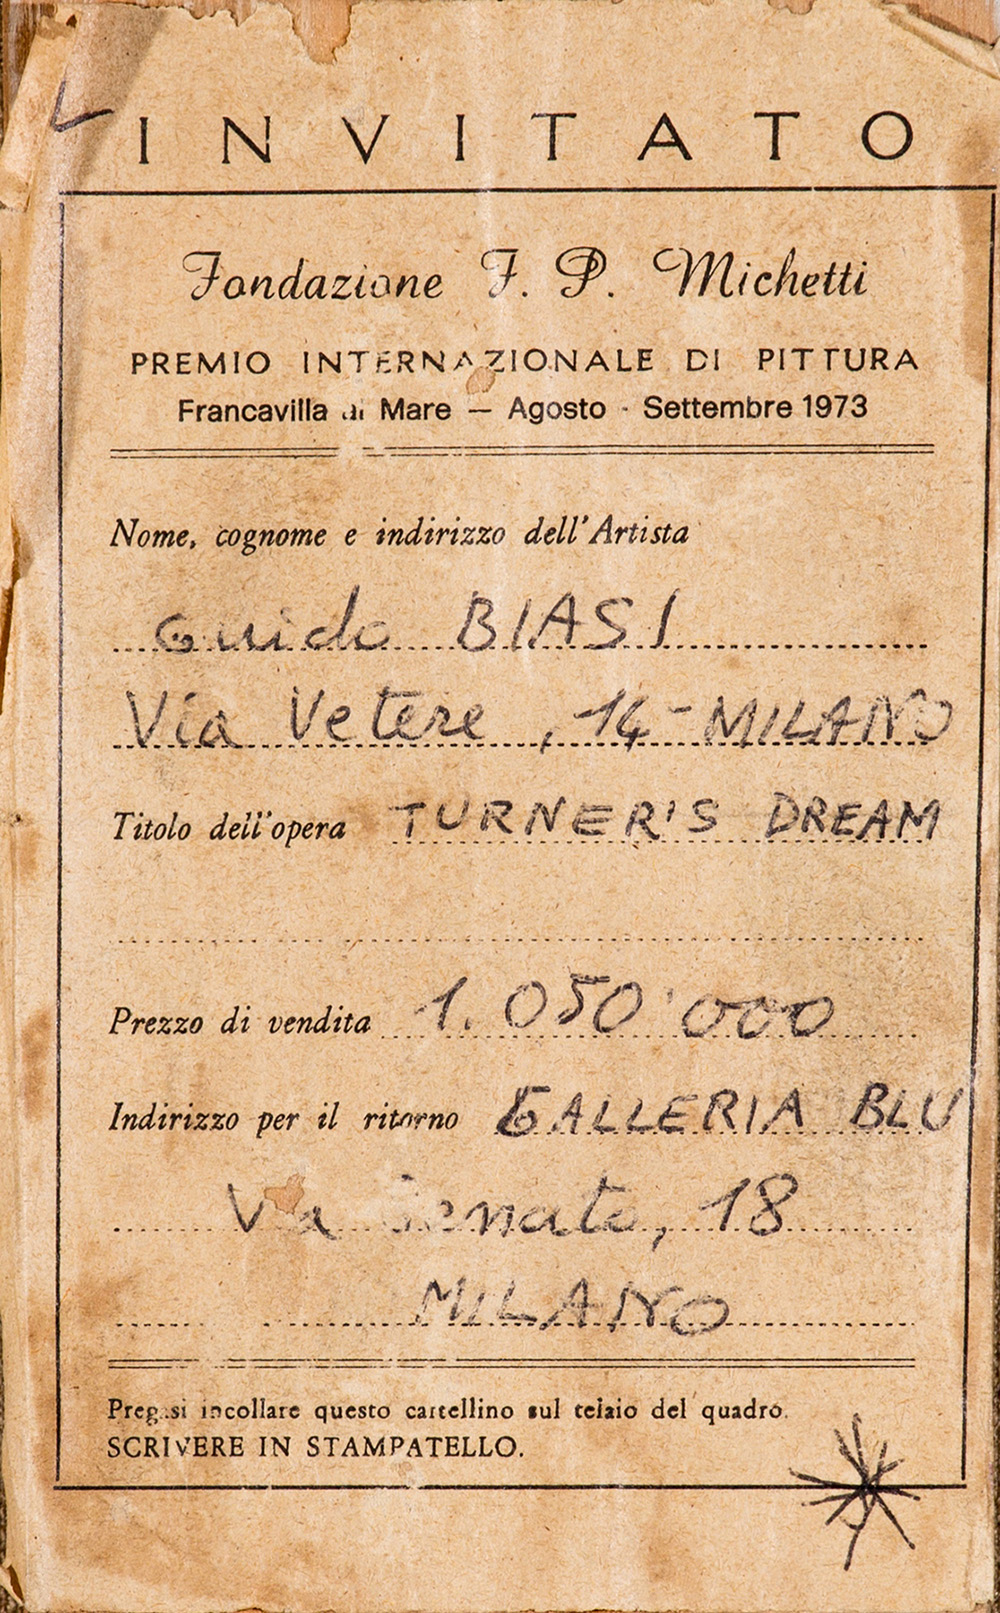 INVITATO
Fondazione F. P. Michetti
PREMIO INTERNAZIONALE DI PITTURA
Francavilla al Mare — Agosto - Settembre 1973
Nome, cognome e indirizzo dell'Artista
Guido BIASI
Via Vetere, 14 - MILANO
Titolo dell'opera TURNER'S DREAM
Prezzo di vendita 1.050'000
Indirizzo per il ritorno GALLERIA BLU
Via Senato, 18
MILANO
Pregasi incollare questo cartellino sul telaio del quadro.
SCRIVERE IN STAMPATELLO.